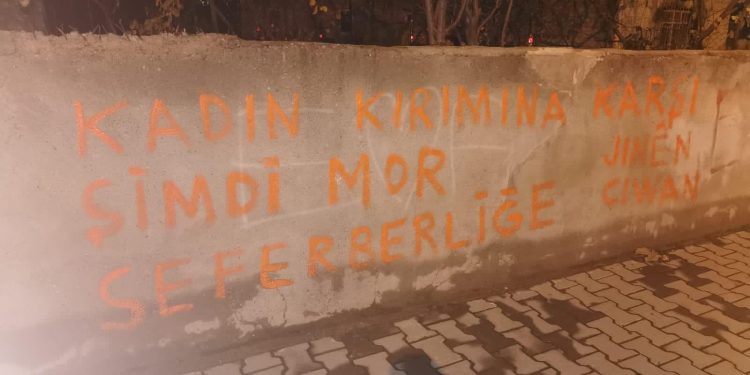 KADIN KIRIMINA KARŞI
ŞİMDİ MOR
SEFERBERLİĞE
JINÊN
CIWAN